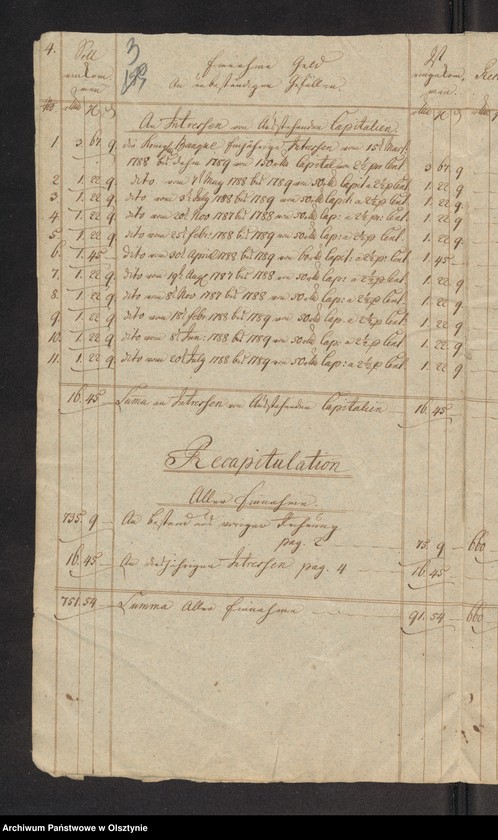 4. Soll 3 Ist
einkom 183 Einnahme Geld eingekom
men An unbeständigen Gefällen. men.
An Intressen von Ausstehenden Capitalien.
1. 3. 67. 9. die Königl. Banque Einjährige Intressen von 15t Mart.
1788 bis dahin 1789 von 150 Capital a 2½ pr Cent 3. 67. 9
2. 1. 22. 9. dito vom 7t May 1788 bis 1789 von 50 Capit a 2½ p Cent 1. 22. 9.
3. 1. 22. 9. dito vom 3t July 1788 bis 1789 von 50 Capit: a 2½ p Cent 1. 22. 9.
4. 1. 22. 9. dito vom 20t Nov 1787 bis 1788 von 50 Cap: a 2½ pr: Cent 1. 22. 9.
5. 1. 22. 9. dito vom 25t febr: 1788 bis 1789 von 50 Cap: a 2½ p Cent. 1. 22. 9.
6. 1. 45. dito vom 30t April 1788 bis 1789 von Capit: a 2½ p Cent 1. 45
7. 1. 22. 9. dito vom 19t Aug 1787 bis 1788 von 50 Cap: a 2½ p Cent 1. 22. 9
8. 1. 22. 9. dito vom 8t Nov 1787 bis 1788 von 50 Cap: a 2½ p Cent 1. 22. 9
9. 1. 22. 9. dito vom 18t febr 1788 bis 1789 von 50 Cap. a 2½ p Cent 1. 22. 9
10. 1. 22. 9. dito vom 8t Jun: 1788 bis 1789 von 50 Cap: a 2½ p Cent 1. 22. 9
11. 1. 22. 9 dito vom 20t July 1788 bis 1789 von 50 Cap: a 2½ p Cent 1. 22. 9
16. 45 Suma an Intressen von Ausstehenden Capitalien 16. 45
Recapitulation
Aller Einnahme.
735. 9 An bestand aus voriger Rechnung
pag. 2 75. 9 660
16. 45 An diesjährigen Intressen pag. 4 16. 45
751. 54 Summa Aller Einnahme 91. 54 660
Archiwum Państwowe w Olsztynie